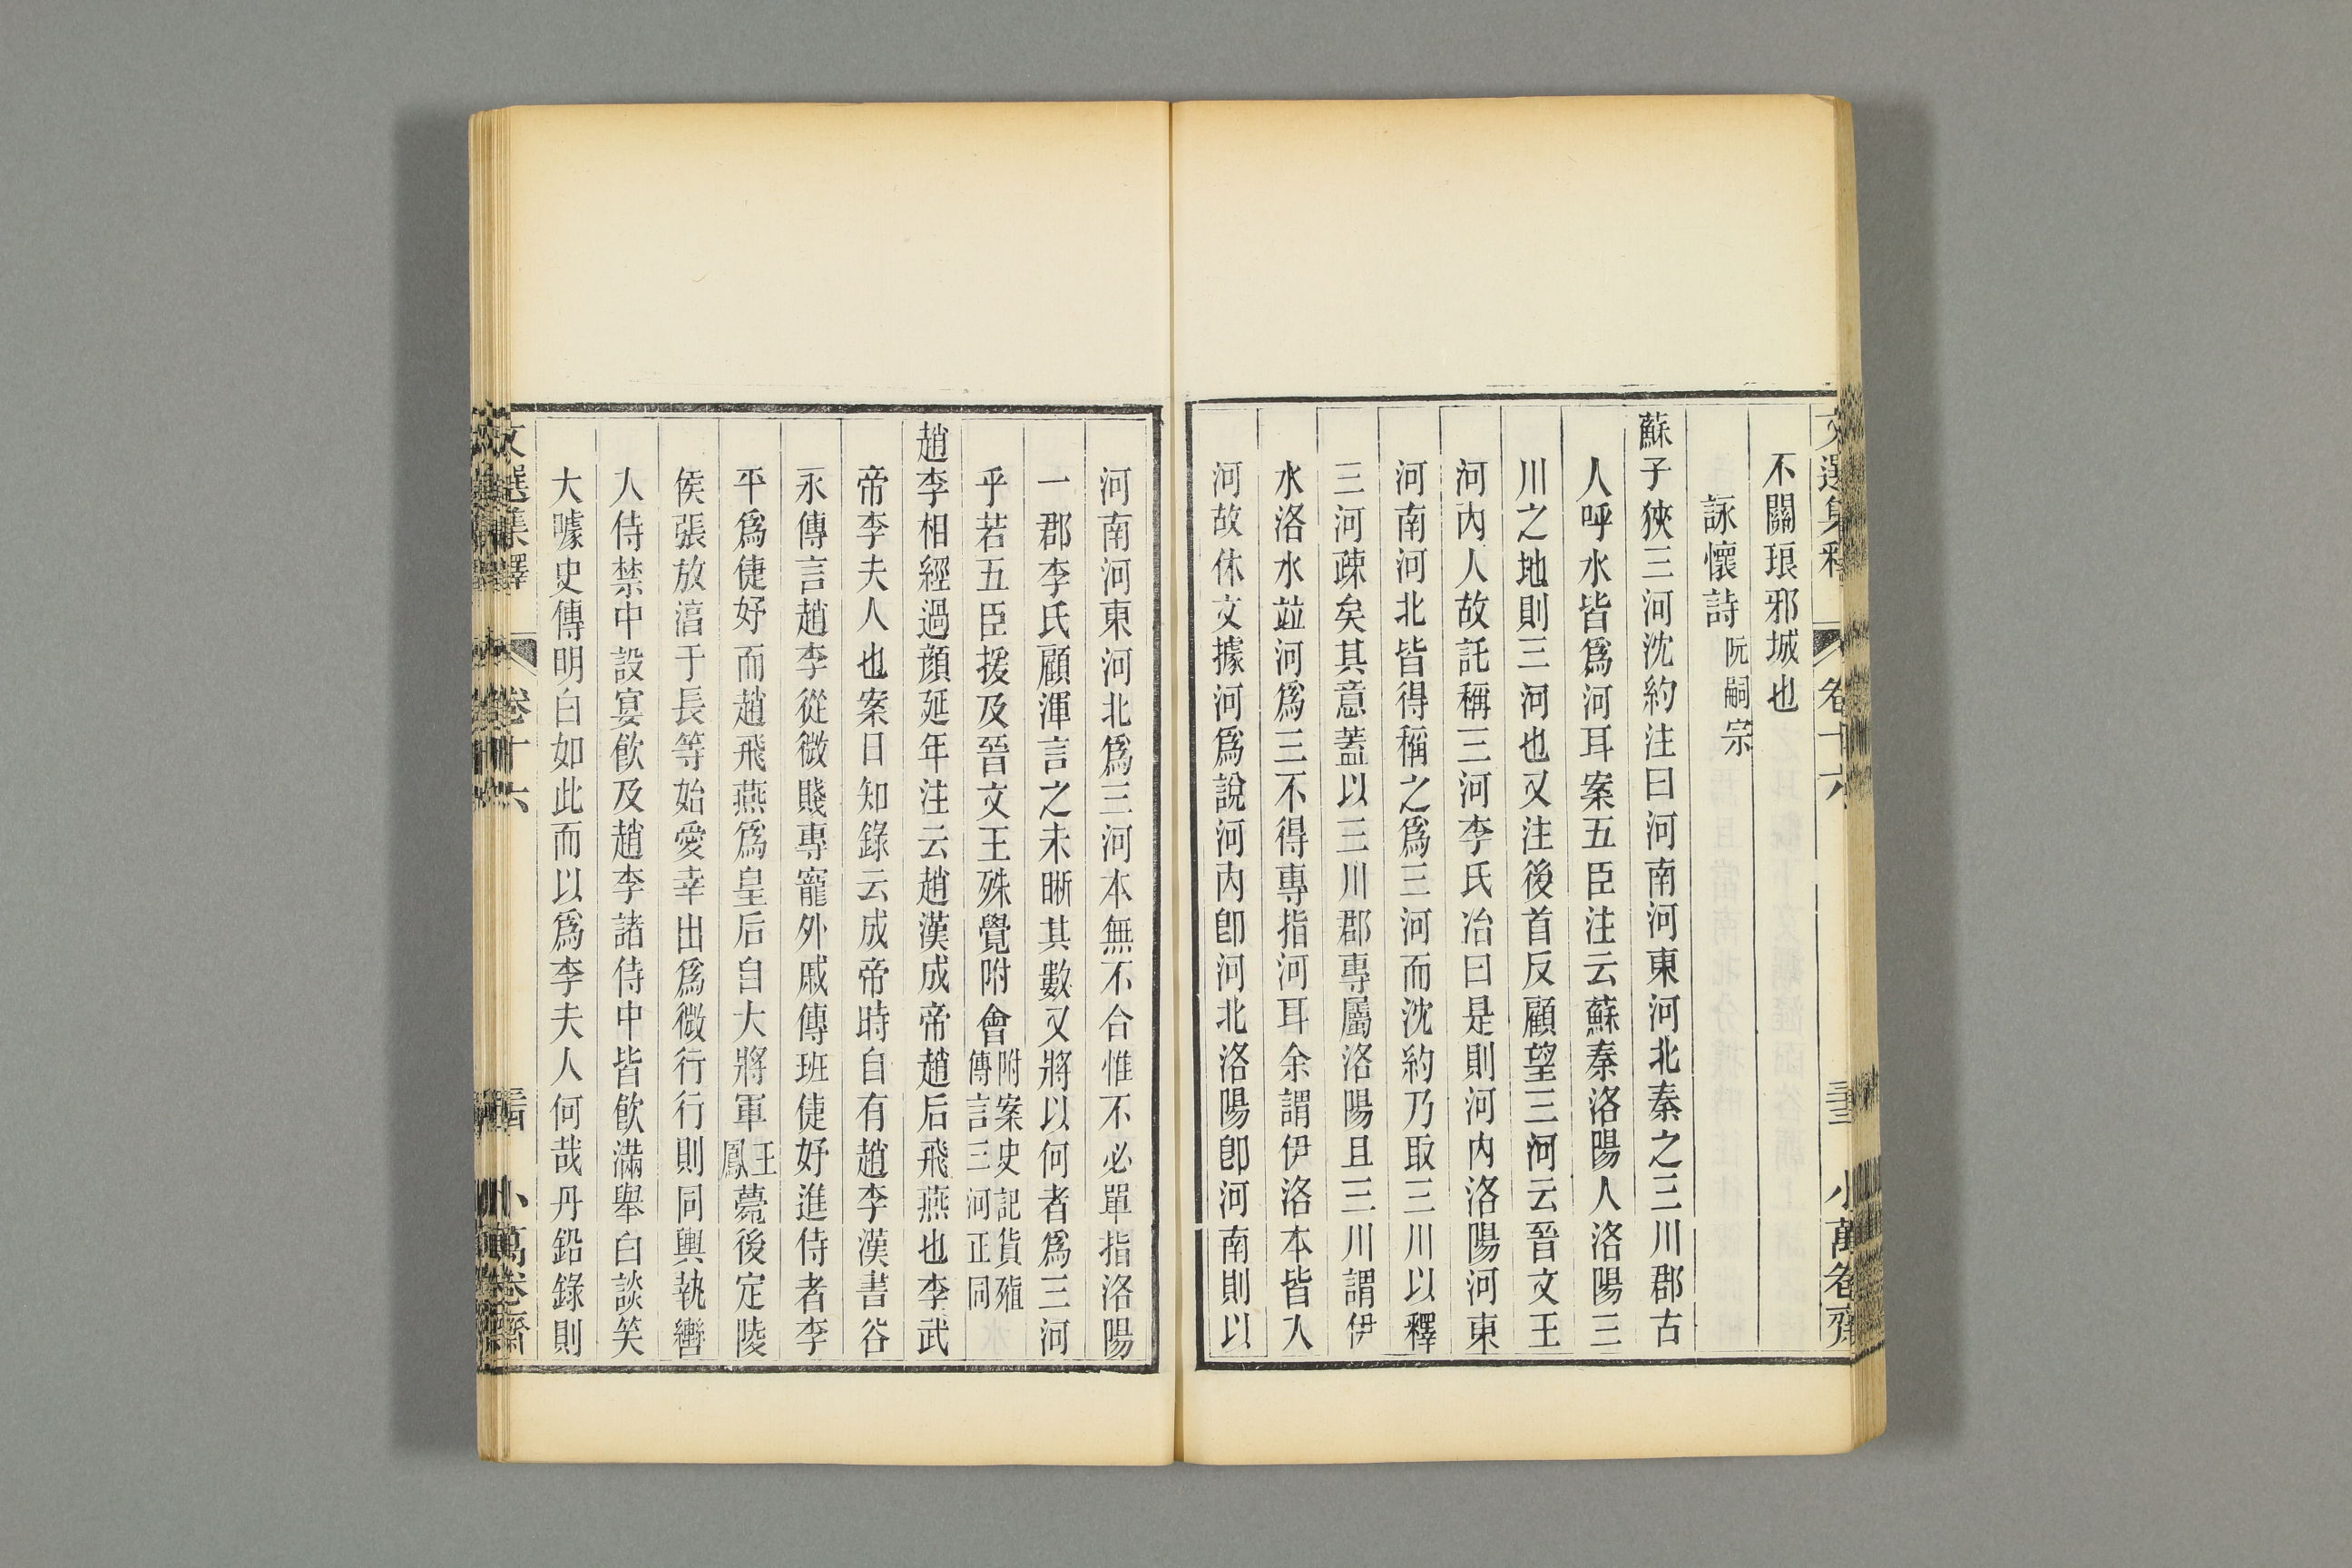 文選集釋 卷十六 小萬卷齋
不關琅邪城也
詠懷詩阮嗣宗
蘇子狹三河沈約注曰河南河東河北秦之三川郡古
人呼水皆爲河耳案五臣注云蘇秦洛陽人洛陽三
川之地則三河也又注後首反顧望三河云晉文王
河內人故託稱三河李氏冶曰是則河內洛陽河東
河南河北皆得稱之爲三河而沈約乃取三川以釋
三河疎矣其意蓋以三川郡專屬洛陽且三川謂伊
水洛水竝河爲三不得專指河耳余謂伊洛本皆入
河故休文據河爲說河內卽河北洛陽卽河南則以
河南河東河北爲三河本無不合惟不必單指洛陽
一郡李氏顧渾言之未晰其數又將以何者爲三河
乎若五臣援及晉文王殊覺附會附案史記貨殖傳言三河正同
趙李相經過顏延年注云趙漢成帝趙后飛燕也李武
帝李夫人也案日知錄云成帝時自有趙李漢書谷
永傳言趙李從微賤專寵外戚傳班倢妤進侍者李
平爲倢妤而趙飛燕爲皇后自大將軍王鳳薨後定陵
侯張放湻于長等始愛幸出爲微行行則同輿執轡
入侍禁中設宴飮及趙李諸侍中皆飮滿舉白談笑
大噱史傳明白如此而以爲李夫人何哉丹鉛錄則
文選集釋 卷十六 小萬卷齋